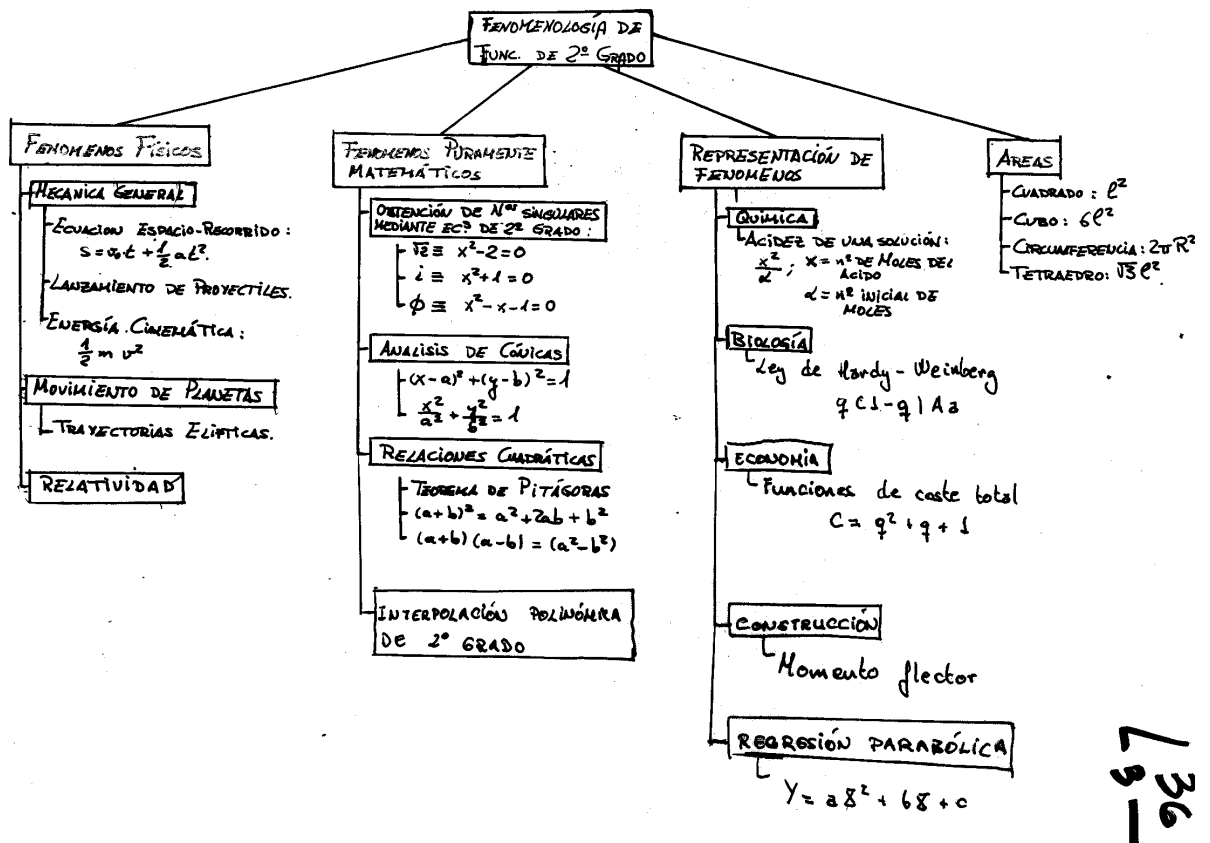 FENOMENOLOGÍA DE
FUNC. DE 2º GRADO
FENOMENOS FÍSICOS
MECANICA GENERAL
ECUACION ESPACIO-RECORRIDO:
S = v₀t + 1/2 at².
LANZAMIENTO DE PROYECTILES.
ENERGÍA CINEMÁTICA:
1/2 m v²
MOVIMIENTO DE PLANETAS
TRAYECTORIAS ELIPTICAS.
RELATIVIDAD
FENOMENOS PURAMENTE
MATEMÁTICOS
OBTENCIÓN DE Nos SINGULARES
MEDIANTE EC³ DE 2º GRADO:
√2 ≡ x²-2=0
i ≡ x²+1=0
ϕ ≡ x²-x-1=0
ANALISIS DE CÓNICAS
(x-a)² + (y-b)² = 1
x²/a² + y²/b² = 1
RELACIONES CUADRÁTICAS
TEOREMA DE PITÁGORAS
(a+b)² = a² + 2ab + b²
(a+b)(a-b) = (a²-b²)
INTERPOLACIÓN POLINÓMICA
DE 2º GRADO
REPRESENTACIÓN DE
FENOMENOS
QUIMICA
ACIDEZ DE UNA SOLUCIÓN:
x²/α ; x = nº DE MOLES DEL
ACIDO
α = nº INICIAL DE
MOLES
BIOLOGÍA
Ley de Hardy-Weinberg
q (1-q) Aa
ECONOMÍA
Funciones de coste total
C = q² + q + 1
CONSTRUCCIÓN
Momento flector
REGRESIÓN PARABÓLICA
Y = a X² + b X + c
AREAS
CUADRADO: l²
CUBO: 6l²
CIRCUNFERENCIA: 2πR²
TETRAEDRO: √3 l²
36